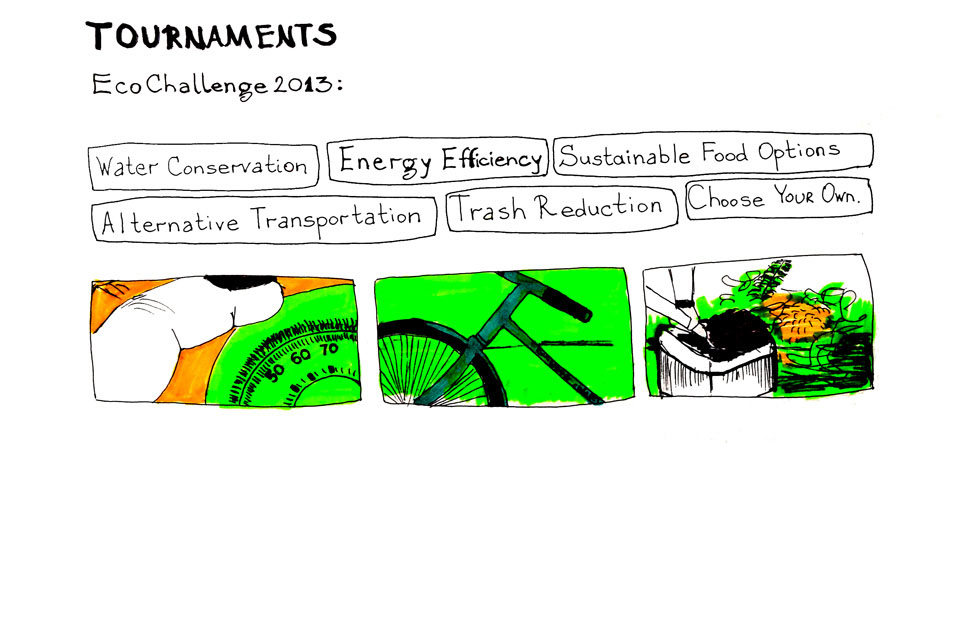 TOURNAMENTS
EcoChallenge 2013:
Water Conservation Energy Efficiency Sustainable Food Options
Alternative Transportation Trash Reduction Choose Your Own.
50 60 70